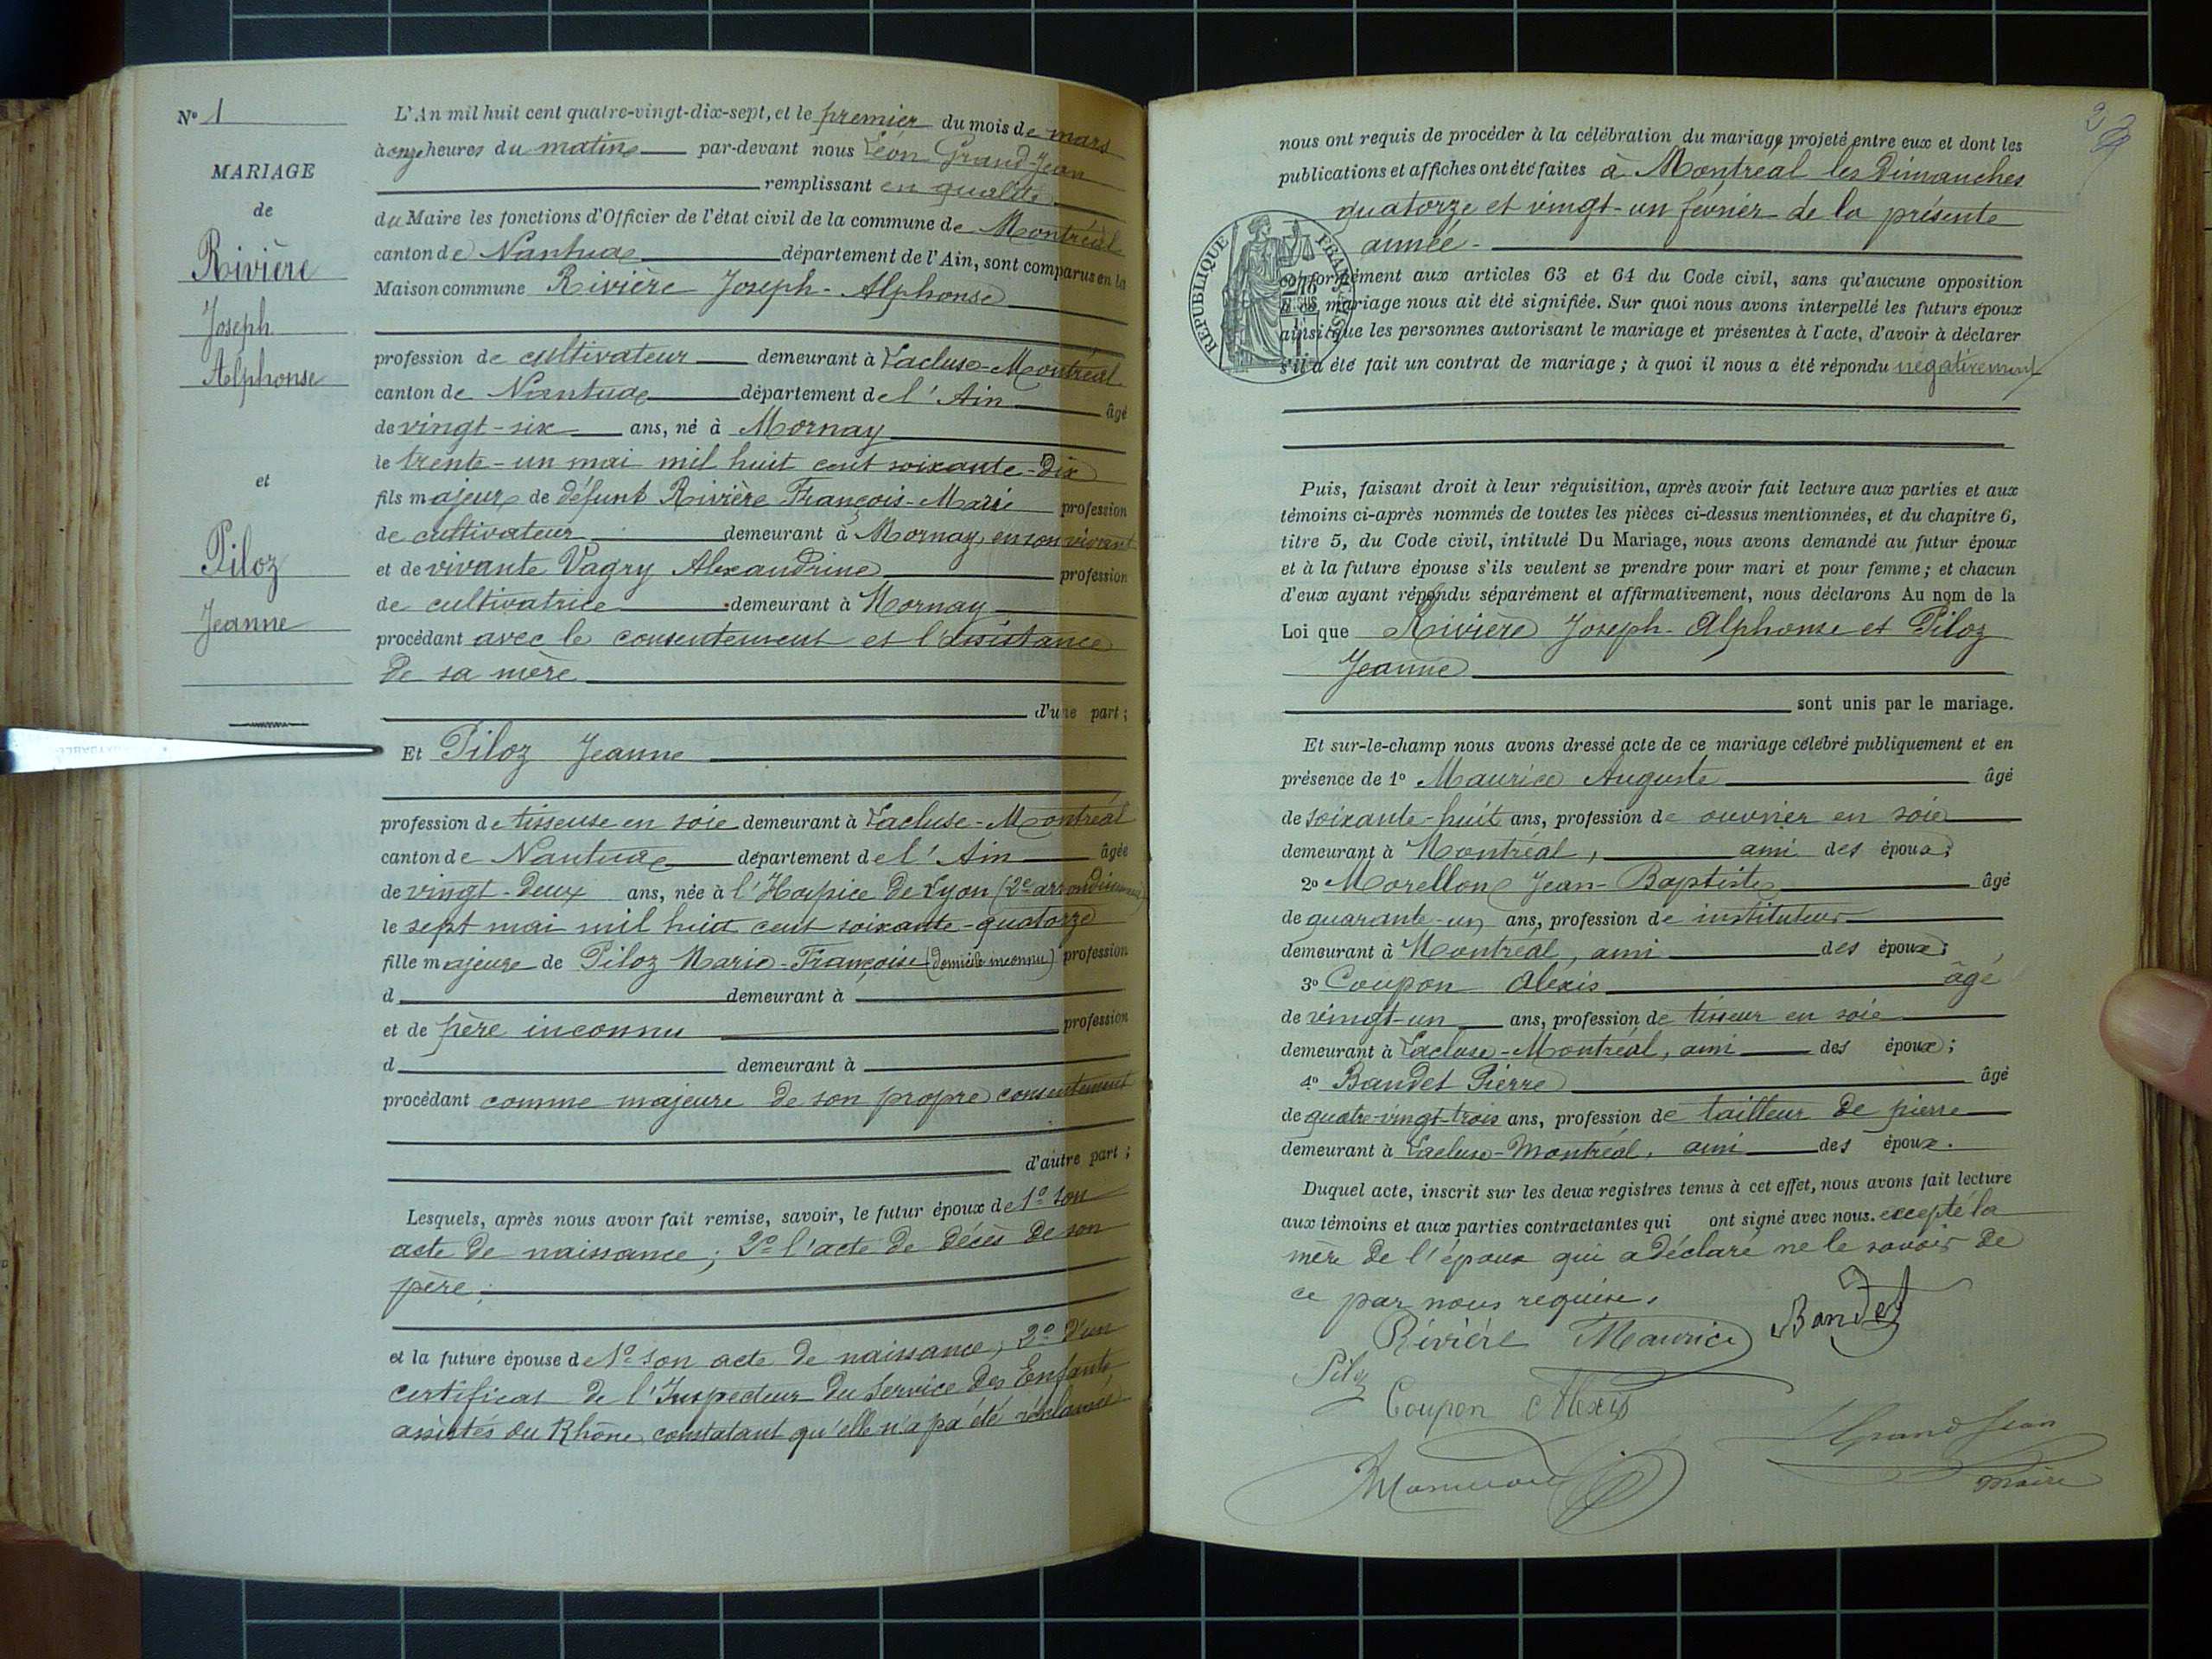 N° 1
MARIAGE
de
Rivière
Joseph
Alphonse
et
Piloz
Jeanne
L'An mil huit cent quatre-vingt-dix-sept, et le premier du mois de mars
à onze heures du matin par-devant nous Léon Grand-Jean
remplissant en qualité
du Maire les fonctions d'Officier de l'état civil de la commune de Montréal
canton de Nantua département de l'Ain, sont comparus en la
Maison commune Rivière Joseph-Alphonse
profession de cultivateur demeurant à Lacluse-Montréal
canton de Nantua département de l'Ain âgé
de vingt-six ans, né à Mornay
le trente-un mai mil huit cent soixante-dix
fils majeur de défunt Rivière François-Marie profession
de cultivateur demeurant à Mornay, en son vivant
et de vivante Vagry Alexandrine profession
de cultivatrice demeurant à Mornay
procédant avec le consentement et l'assistance
de sa mère
d'une part ;
Et Piloz Jeanne
profession de tisseuse en soie demeurant à Lacluse-Montréal
canton de Nantua département de l'Ain âgée
de vingt-deux ans, née à l'Hospice de Lyon (2e arrondissement)
le sept mai mil huit cent soixante-quatorze
fille majeure de Piloz Marie-Françoise (domicile inconnu) profession
d demeurant à
et de père inconnu profession
d demeurant à
procédant comme majeure de son propre consentement
d'autre part ;
Lesquels, après nous avoir fait remise, savoir, le futur époux de 1° son
acte de naissance ; 2° l'acte de décès de son
père ;
et la future épouse de 1° son acte de naissance ; 2° d'un
certificat de l'Inspecteur du Service des Enfants
assistés du Rhône, constatant qu'elle n'a pa été réclamée
nous ont requis de procéder à la célébration du mariage projeté entre eux et dont les
publications et affiches ont été faites à Montréal les Dimanches
quatorze et vingt-un février de la présente
année.
RÉPUBLIQUE FRANÇAISE
conformément aux articles 63 et 64 du Code civil, sans qu'aucune opposition
mariage nous ait été signifiée. Sur quoi nous avons interpellé les futurs époux
ainsi que les personnes autorisant le mariage et présentes à l'acte, d'avoir à déclarer
s'il a été fait un contrat de mariage ; à quoi il nous a été répondu négativement
Puis, faisant droit à leur réquisition, après avoir fait lecture aux parties et aux
témoins ci-après nommés de toutes les pièces ci-dessus mentionnées, et du chapitre 6,
titre 5, du Code civil, intitulé Du Mariage, nous avons demandé au futur époux
et à la future épouse s'ils veulent se prendre pour mari et pour femme ; et chacun
d'eux ayant répondu séparément et affirmativement, nous déclarons Au nom de la
Loi que Rivière Joseph-Alphonse et Piloz
Jeanne
sont unis par le mariage.
Et sur-le-champ nous avons dressé acte de ce mariage célébré publiquement et en
présence de 1° Maurice Auguste âgé
de soixante-huit ans, profession de ouvrier en soie
demeurant à Montréal, ami des époux ;
2° Morellon Jean-Baptiste âgé
de quarante-un ans, profession de instituteur
demeurant à Montréal, ami des époux ;
3° Coupon Alexis âgé
de vingt-un ans, profession de tisseur en soie
demeurant à Lacluse-Montréal, ami des époux ;
4° Bandet Pierre âgé
de quatre-vingt-trois ans, profession de tailleur de pierre
demeurant à Lacluse-Montréal, ami des époux.
Duquel acte, inscrit sur les deux registres tenus à cet effet, nous avons fait lecture
aux témoins et aux parties contractantes qui ont signé avec nous. excepté la
mère de l'époux qui a déclaré ne le savoir de
ce par nous requise.
Rivière Maurice Bandet
Piloz
Coupon Alexis
GrandJean
maire